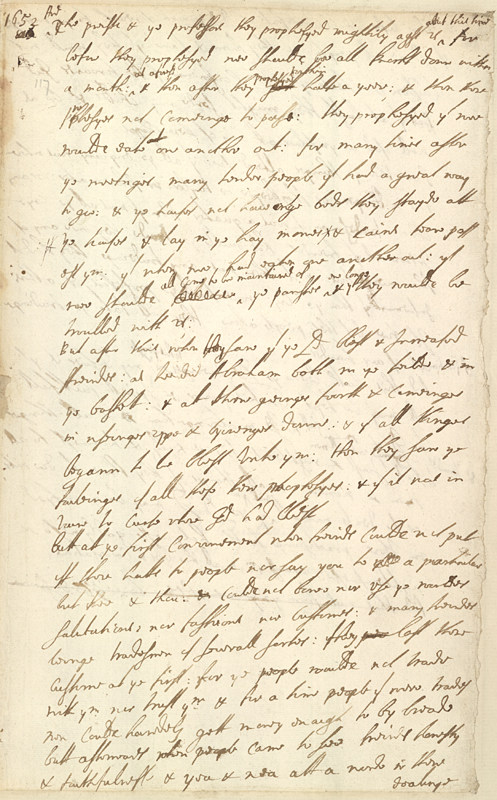 1652 And ye preists & ye professors they prophesyed mightily against us about this time for
before they prophesyed wee shoulde bee all knockt doune within
a month: & then after they prophesyed within halfe a yeere: & then there
prophesyes not cominge to passe: they prophesyed yt wee
woulde eate one another out: for many times after
ye meetinges many tender people yt had a great way
to goe: & ye houses not haveinge beds they stayde att
ye houses & lay in ye hay mowes: & Caines feare pos
est ym: yt when wee had eaten one another out: yt
wee shoulde all come to bee maintained of ye parishes & yt they woulde be
troubled with us:
But after this when they sawe yt ye Ld blest & Increased
freinds: as hee did Abraham both in ye feilde & in
ye basket: & at there goinges forth & comeinges
in risinges uppe & lyinges doune: & yt all thinges
begann to be blest unto ym: then they sawe ye
failinges of all these there prophesyes: & yt it was in
vaine to Curse where God had blest
but at ye first Convincement when freinds Coulde not put
off there hatts to people nor say you to a particular
but thee & thou: & Coulde not bowe nor use ye worldes
salutations: nor fashions nor Customes: & many freinds
beinge tradesmen of severall sortes: they lost there
Custome at ye first: for ye people woulde not trade
with ym nor trust ym & for a time people yt were trades
men Coulde hardely gett money enough to by breade
butt afterwards when people came to see freinds honesty
& faithfulnesse & yea & nea att a worde in there
dealinge